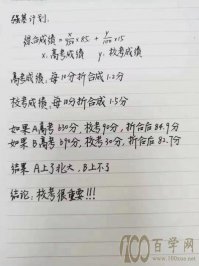 强基计划:
综合成绩 = x/750 ×85 + y/100 ×15
x. 高考成绩 y. 校考成绩
高考成绩,每10分折合成1.2分
校考成绩,每10分折合成1.5分
如果A高考630分,校考90分,折合后84.9分
如果B高考690分,校考30分,折合后82.7分
结果A上了北大,B上不了
结论:校考很重要!!!
100百学网